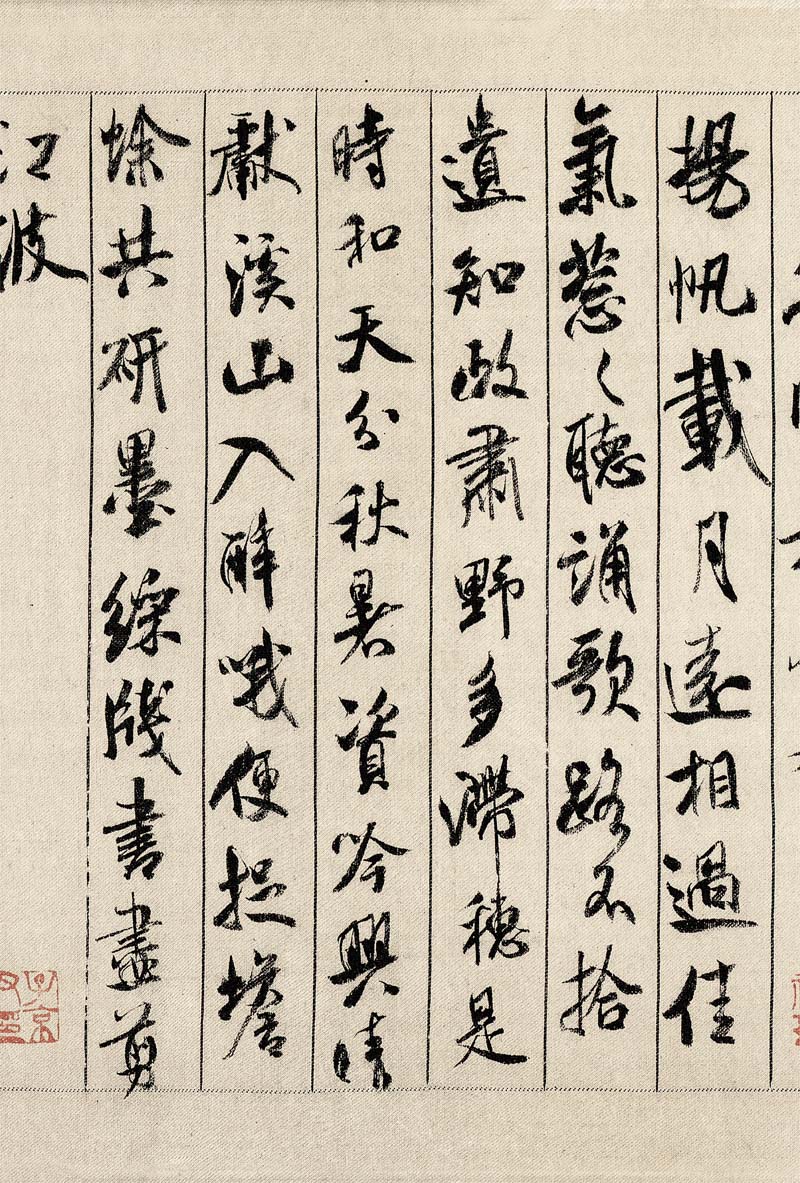 揚帆載月遠相過佳
氣葱〻聽誦歌路不拾
遺知政肅野多滯穗是
時和天分秋暑資吟興晴
獻溪山入醉哦便捉蟾
蜍共研墨綵牋書盡剪
江波